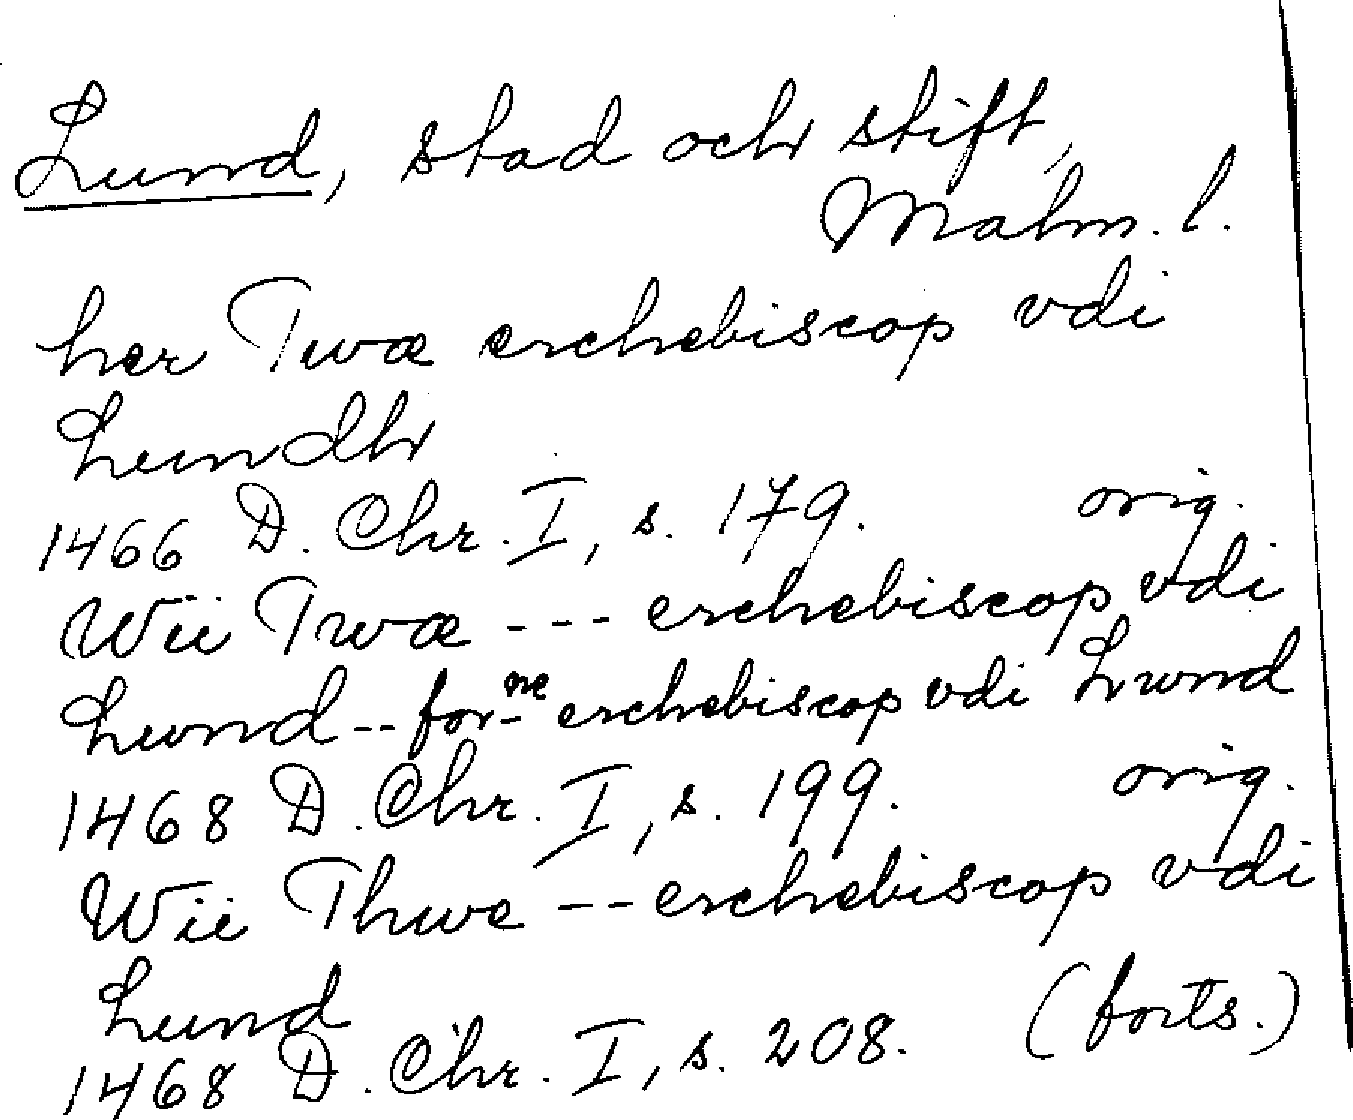 Lund, stad och stift,
Malm. l.
her Twæ erchebiscop vdi
Lundh
1466 D. Chr. I, s. 179. orig.
Wii Twæ --- erchebiscop vdi
Lund -- for-ne erchebiscop vdi Lwnd
1468 D. Chr. I, s. 199. orig.
Wii Thwe -- erchebiscop vdi
Lund
1468 D. Chr. I, s. 208. (forts.)